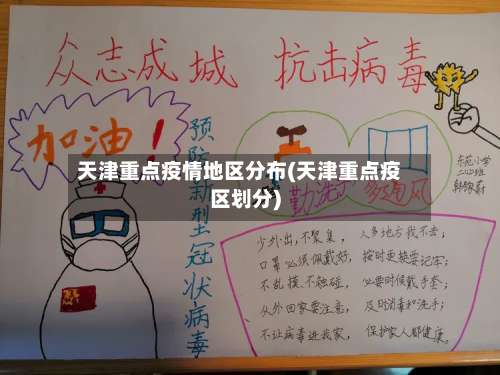 众志成城 抗击病毒
加油！
预防新型冠状病毒
天津重点疫情地区分布(天津重点疫
区划分)
勤洗手
多通风
东苑小学
少外出,不聚集，人多地方我不去;
口罩必须佩戴好，按时更换要记牢;
不乱摸、不触碰，必要时候戴手套;
从外回家要注意，及时消毒和洗手;
不让病毒进我家，保护家人都健康。